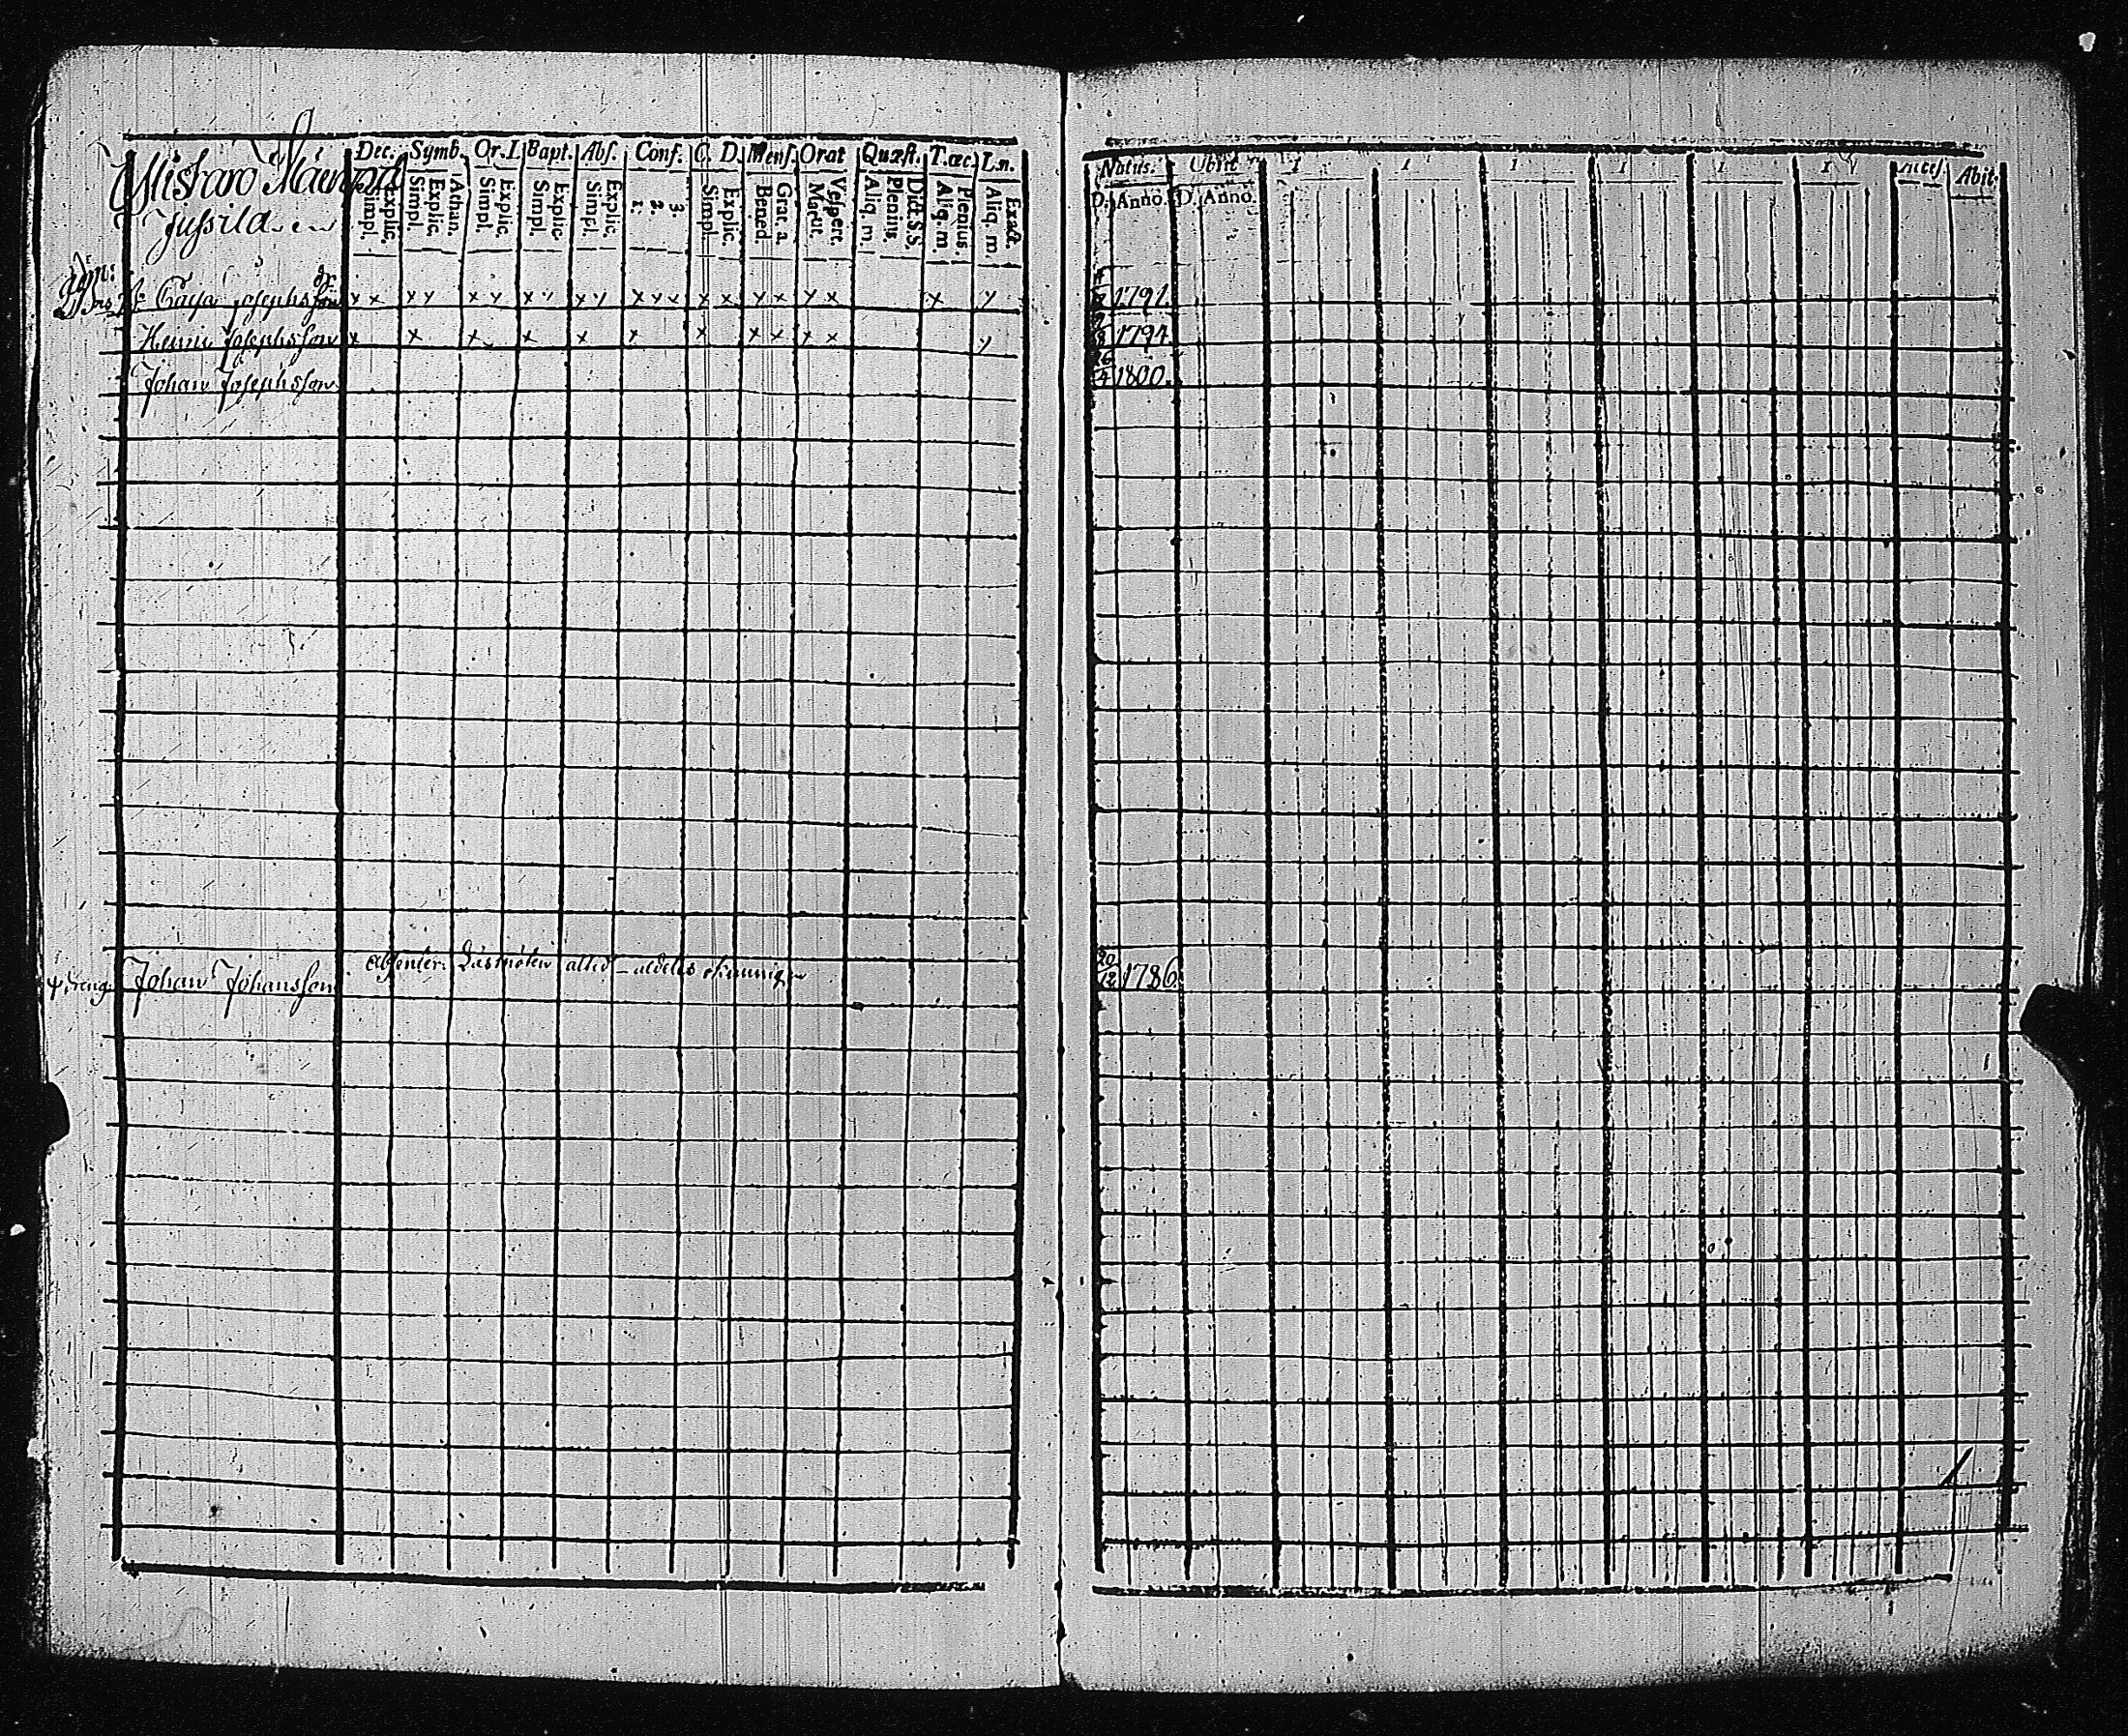 Dec. Symb. Or. I. Bapt. Abs. Conf. C. D. Mens. Orat Quæst. T. œc. L.n.
Simpl. Explic. Simpl. Explic. Athan. Simpl. Explic. Simpl. Explic. Simpl. Explic. 1. 2. 3 Simpl. Explic. Bened. Grat. a. Matut. Vesperr. Aliq. m. Plenius. Dict. S. S. Aliq. m. Plenius. Aliq. m. Exact.
Natus. Obiit 1 1 1 1 1 1 Acces. Abit.
D. Anno. D. Anno.
Jussila
Caisa Josephs x x x y x y x y x y x y x x x y x y x x y 1791
Josephsson x x x x x x x x x x x y 1794
Johan Josephsson 26/4 1800.
Dreng Johan Johansson absenter. Läsmöten altid - aldeles okunnig 20/12 1786.